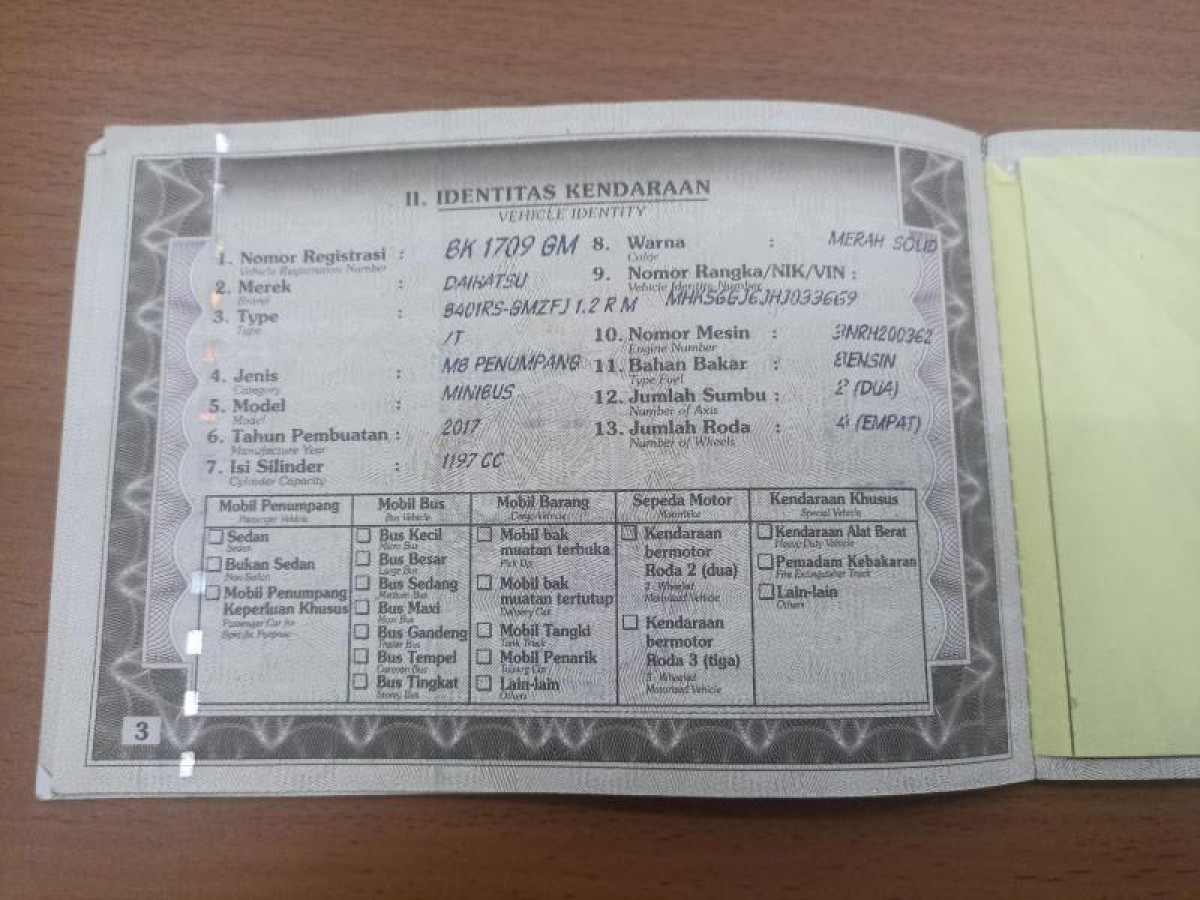 II. IDENTITAS KENDARAAN
VEHICLE IDENTITY
1. Nomor Registrasi : BK 1709 GM
Vehicle Registration Number
2. Merek : DAIHATSU
Brand
3. Type : B401RS-GMZFJ 1.2 R M
Type
/T
4. Jenis : MB PENUMPANG
Category
5. Model : MINIBUS
Model
6. Tahun Pembuatan : 2017
Manufacture Year
7. Isi Silinder : 1197 CC
Cylinder Capacity
8. Warna : MERAH SOLID
Color
9. Nomor Rangka/NIK/VIN :
Vehicle Identity Number
MHKS6GJ6JHJ033669
10. Nomor Mesin : 3NRH200362
Engine Number
11. Bahan Bakar : BENSIN
Type Fuel
12. Jumlah Sumbu : 2 (DUA)
Number of Axis
13. Jumlah Roda : 4 (EMPAT)
Number of Wheels
Mobil Penumpang
Passenger Vehicle
Sedan
Sedan
Bukan Sedan
Non Sedan
Mobil Penumpang
Keperluan Khusus
Passenger Car for
Specific Purpose
Mobil Bus
Bus Vehicle
Bus Kecil
Micro Bus
Bus Besar
Large Bus
Bus Sedang
Medium Bus
Bus Maxi
Maxi Bus
Bus Gandeng
Trailer Bus
Bus Tempel
Caravan Bus
Bus Tingkat
Storey Bus
Mobil Barang
Cargo Vehicle
Mobil bak
muatan terbuka
Pick Up
Mobil bak
muatan tertutup
Delivery Car
Mobil Tangki
Tank Truck
Mobil Penarik
Towing Car
Lain-lain
Others
Sepeda Motor
Motorbike
Kendaraan
bermotor
Roda 2 (dua)
2 Wheeled
Motorized Vehicle
Kendaraan
bermotor
Roda 3 (tiga)
3 Wheeled
Motorized Vehicle
Kendaraan Khusus
Special Vehicle
Kendaraan Alat Berat
Heavy Duty Vehicle
Pemadam Kebakaran
Fire Extinguisher Truck
Lain-lain
Others
3